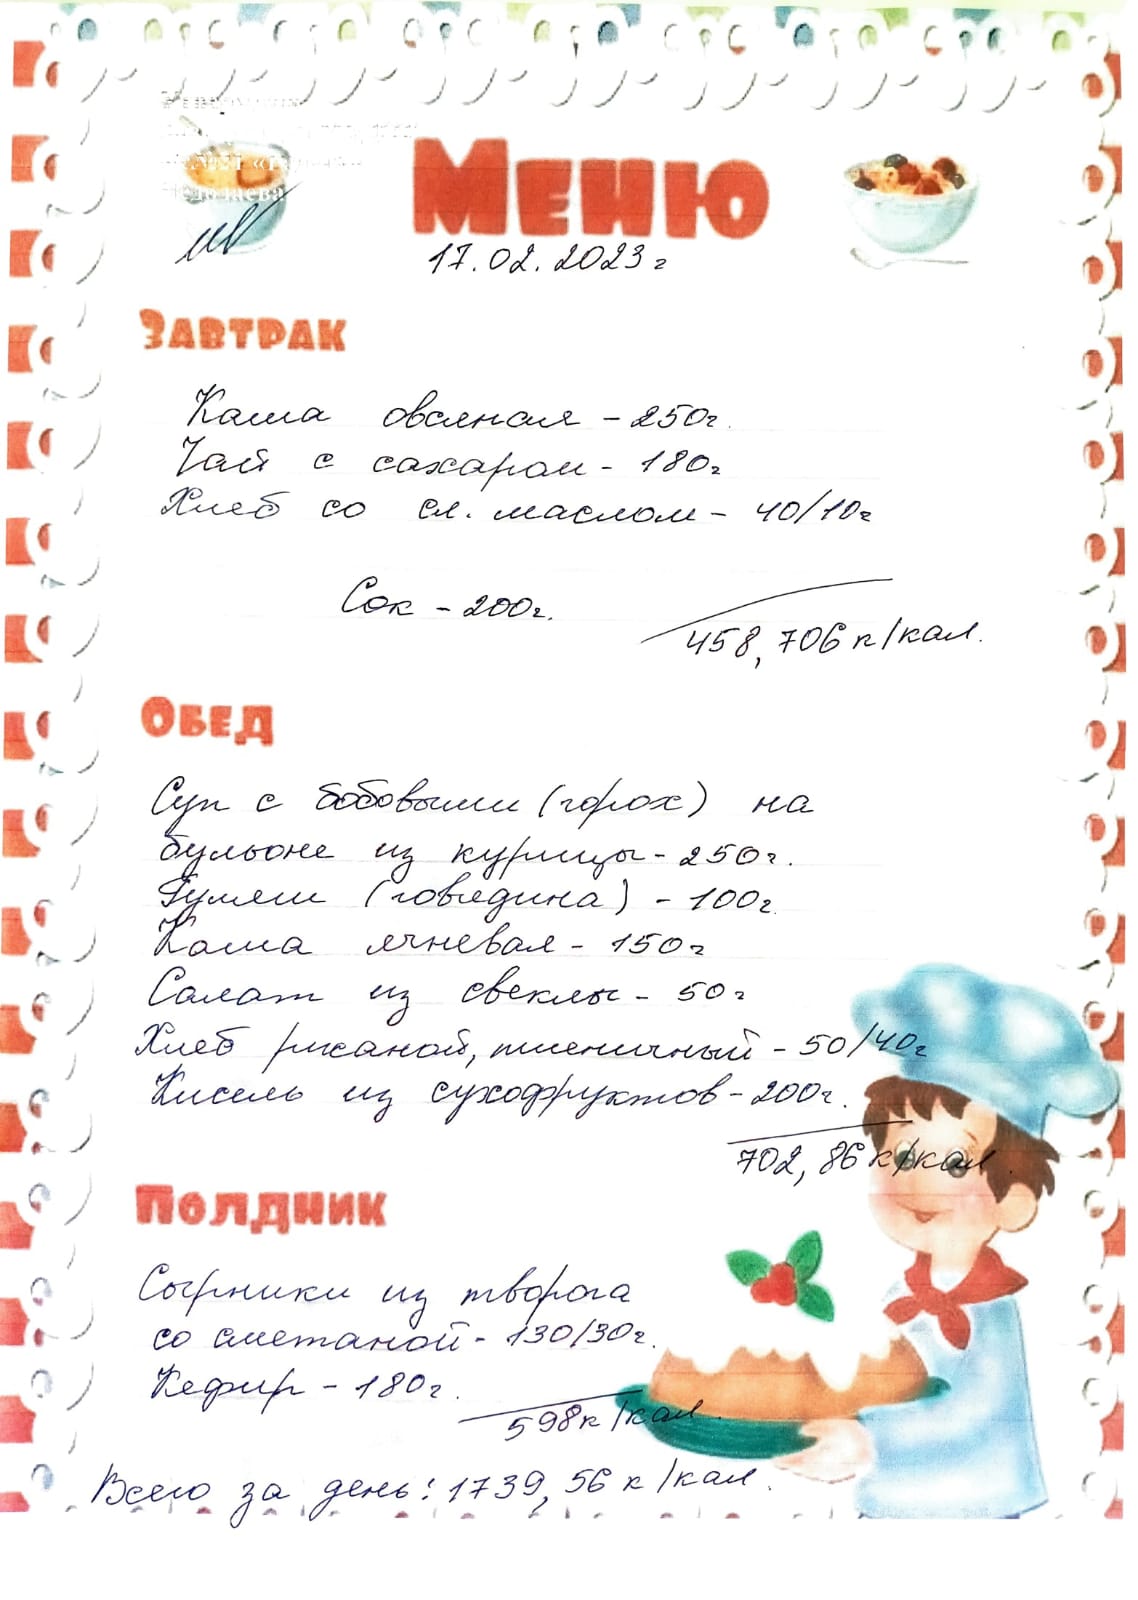 Меню
17.02.2023г
Завтрак
Каша овсяная - 250г.
Чай с сахаром - 180г
Хлеб со сл. маслом - 40/10г
Сок - 200г.
458,706 к/кал.
Обед
Суп с бобовыми (горох) на
бульоне из курицы - 250г.
Гуляш (говядина) - 100г.
Каша ячневая - 150г
Салат из свеклы - 50г
Хлеб ржаной, пшеничный - 50/40г
Кисель из сухофруктов - 200г.
702,86 к/кал.
Полдник
Сырники из творога
со сметаной - 130/30г.
Кефир - 180г.
598 к/кал.
Всего за день: 1739,56 к/кал.